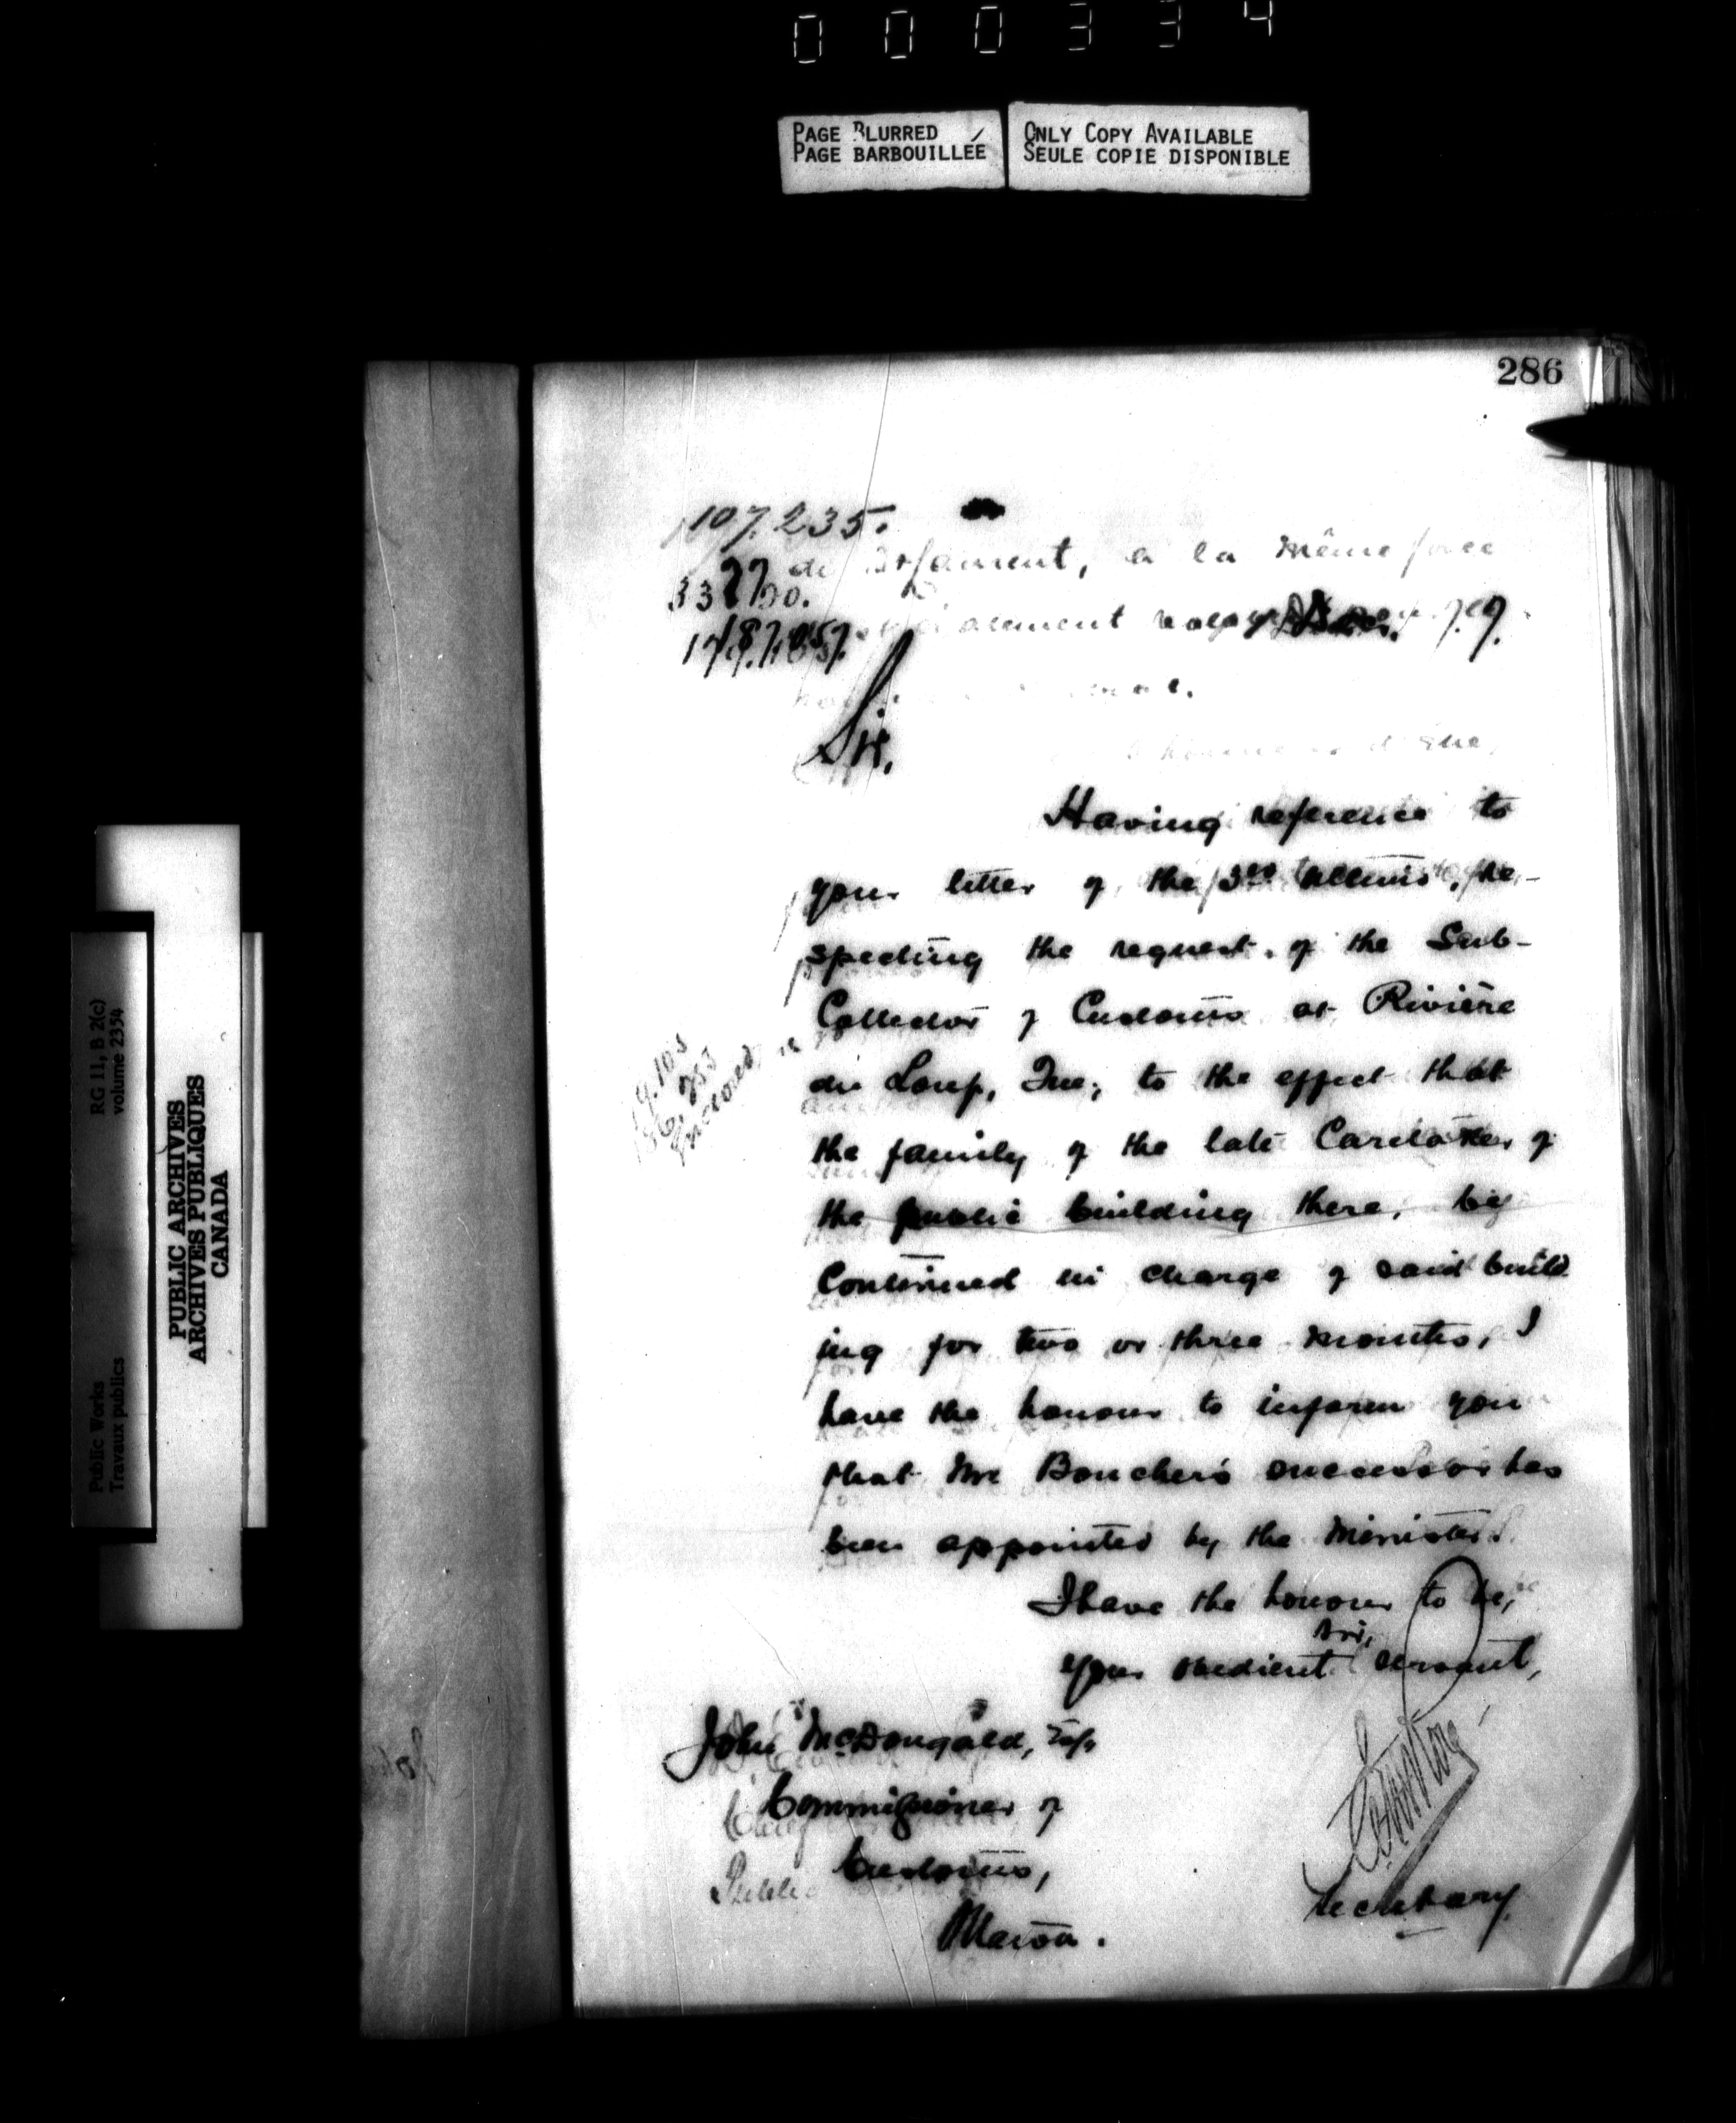 000334
PAGE BLURRED
PAGE BARBOUILLÉE
ONLY COPY AVAILABLE
SEULE COPIE DISPONIBLE
286
107.235.
à la même
Sir,
Having reference to
your letter of the 3rd ultimo, re-
specting the request of the Sub-
Collector of Customs at Rivière
du Loup, Que; to the effect that
the family of the late Caretaker of
the public building there, be
continued in charge of said build
ing for two or three months, I
have the honour to inform you
that Mr Boucher's successor has
been appointed by the Minister.
I have the honour to be,
Sir,
your obedient servant,
John McDougald, Esq
Commissioner of
Customs,
Secretary
Enclosed
RG 11, B 2(c)
volume 2354
Public Works
Travaux publics
PUBLIC ARCHIVES
ARCHIVES PUBLIQUES
CANADA